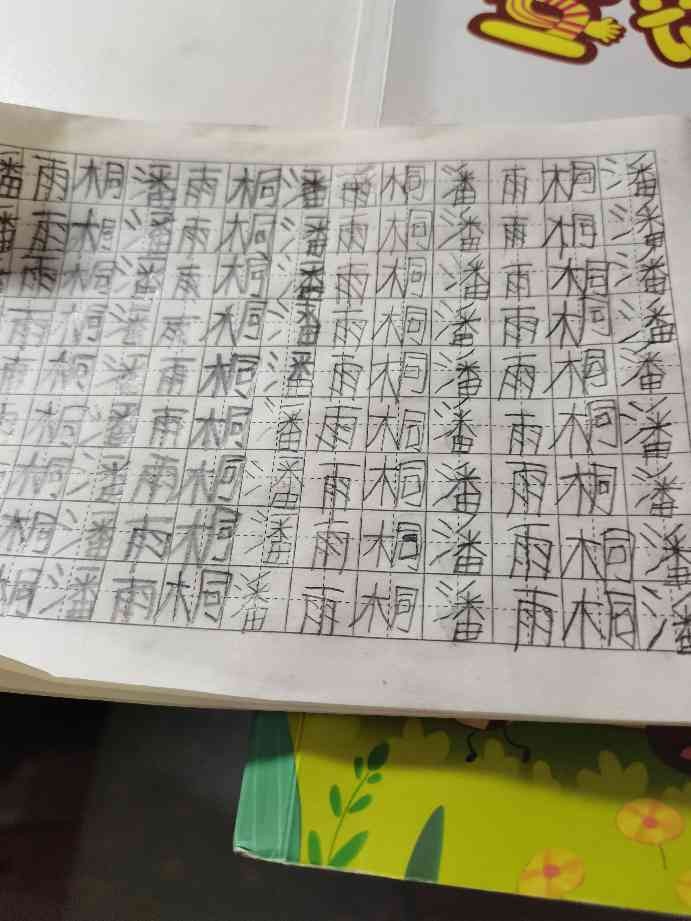 潘雨桐潘雨桐潘雨桐潘雨桐潘
潘雨桐潘雨桐潘雨桐潘雨桐潘
雨桐潘雨桐潘雨桐潘雨桐潘
雨桐潘雨桐潘雨桐潘雨桐潘
雨桐潘雨桐潘雨桐潘雨桐潘
雨桐潘雨桐潘雨桐潘雨桐潘
桐潘雨桐潘雨桐潘雨桐潘
桐潘雨桐潘雨桐潘雨桐潘
桐潘雨桐潘雨桐潘雨桐潘